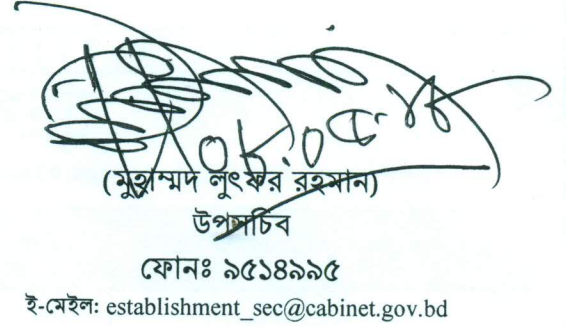 (মুহাম্মদ লুৎফর রহমান)
উপসচিব
ফোনঃ ৯৫১৪৯৯৫
ই-মেইল: establishment_sec@cabinet.gov.bd